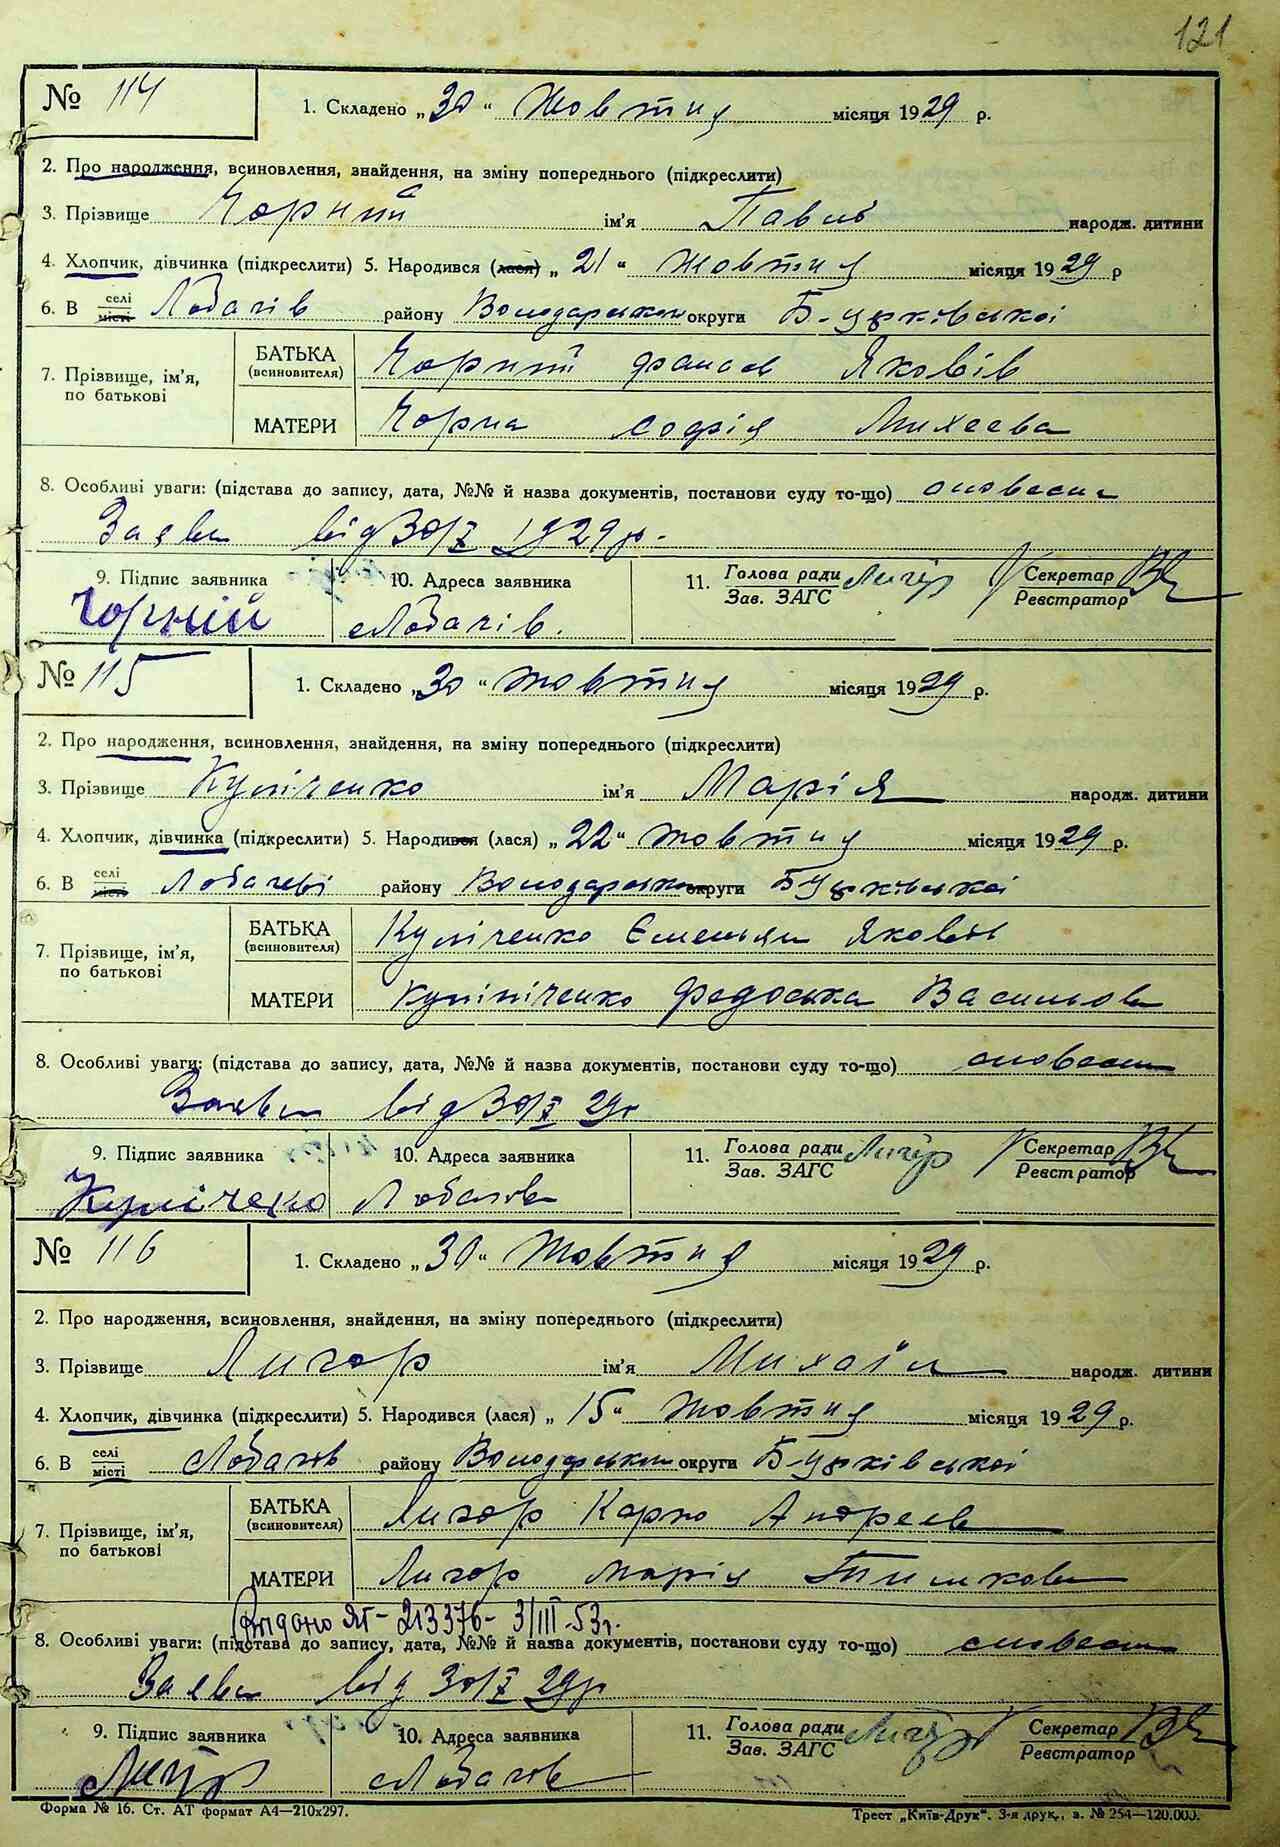 121
№ 114 1. Складено „30“ Жовтня місяця 1929 р.
2. Про народження, всиновлення, знайдення, на зміну попереднього (підкреслити)
3. Прізвище Чорний ім'я Павло народж. дитини
4. Хлопчик, дівчинка (підкреслити) 5. Народився (лася) „21“ Жовтня місяця 1929 р
6. В селі місті Лобачів району Володарськои округи Б-Церківської
7. Прізвище, ім'я, по батькові БАТЬКА (всиновителя) Чорний Фанас Яковів
МАТЕРИ Чорна Софія Михеева
8. Особливі уваги: (підстава до запису, дата, №№ й назва документів, постанови суду то-що) словесна
Заява від 30/X 1929р.
9. Підпис заявника 10. Адреса заявника 11. Голова ради Лигор Секретар
Зав. ЗАГС Реєстратор
Чорний Лобачів.
№ 115 1. Складено „30“ Жовтня місяця 1929 р.
2. Про народження, всиновлення, знайдення, на зміну попереднього (підкреслити)
3. Прізвище Куліченко ім'я Марія народж. дитини
4. Хлопчик, дівчинка (підкреслити) 5. Народився (лася) „22“ Жовтня місяця 1929 р.
6. В селі місті Лобачеві району Володарськои округи БЦерківської
7. Прізвище, ім'я, по батькові БАТЬКА (всиновителя) Куліченко Ємельян Яковів
МАТЕРИ Федоська Васильова
8. Особливі уваги: (підстава до запису, дата, №№ й назва документів, постанови суду то-що) словесна
Заява від 30/X 29р
9. Підпис заявника 10. Адреса заявника 11. Голова ради Лигор Секретар
Зав. ЗАГС Реєстратор
Куліченко Лобачов
№ 116 1. Складено „30“ Жовтня місяця 1929 р.
2. Про народження, всиновлення, знайдення, на зміну попереднього (підкреслити)
3. Прізвище Лигор ім'я Михаїл народж. дитини
4. Хлопчик, дівчинка (підкреслити) 5. Народився (лася) „15“ Жовтня місяця 1929 р.
6. В селі місті Лобачов району Володарськои округи Б-Церківської
7. Прізвище, ім'я, по батькові БАТЬКА (всиновителя) Лигор Карпо Андреев
МАТЕРИ Лигор Марія Тимкова
Видано ЯТ-213376- 3/III-53г.
8. Особливі уваги: (підстава до запису, дата, №№ й назва документів, постанови суду то-що) словесна
Заява від 30/X 29р
9. Підпис заявника 10. Адреса заявника 11. Голова ради Лигор Секретар
Зав. ЗАГС Реєстратор
Лигор Лобачов
Форма № 16. Ст. АТ формат А4—210х297. Трест „Київ-Друк“. 3-я друк., з. № 254—120.000.